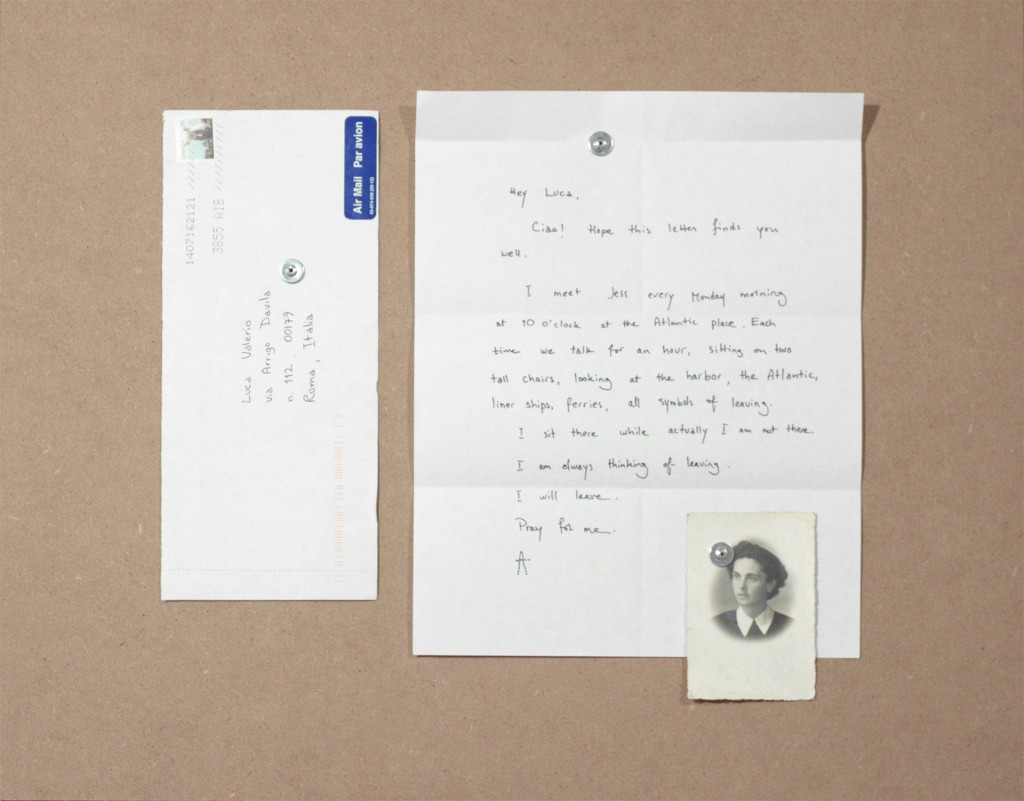 1407162121
3855 A18
Air Mail Par avion
Luca Valerio
via Arrigo Davila
n. 112. 00179
Roma, Italia
Hey Luca,
Ciao! Hope this letter finds you
well.
I meet Jess every Monday morning
at 10 o'clock at the Atlantic place. Each
time we talk for an hour, sitting on two
tall chairs, looking at the harbor, the Atlantic,
liner ships, ferries, all symbols of leaving.
I sit there while actually I am not there.
I am always thinking of leaving.
I will leave.
Pray for me.
A.